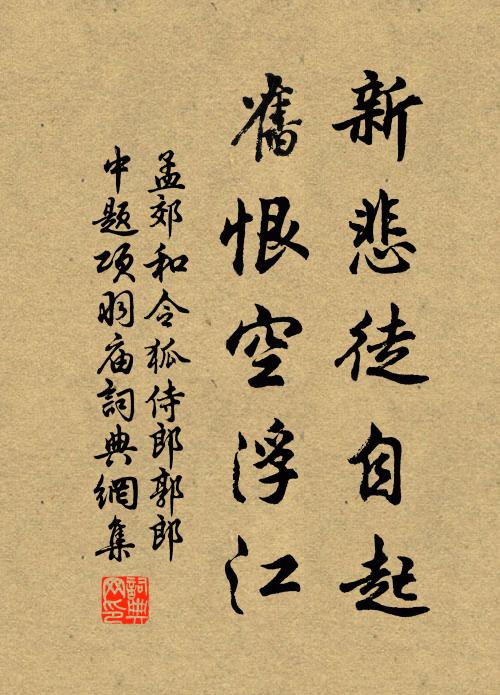 新悲徒自起
舊恨空浮江
孟郊和令狐侍郎郭郎
中题项羽庙詞典網集
詞典网印